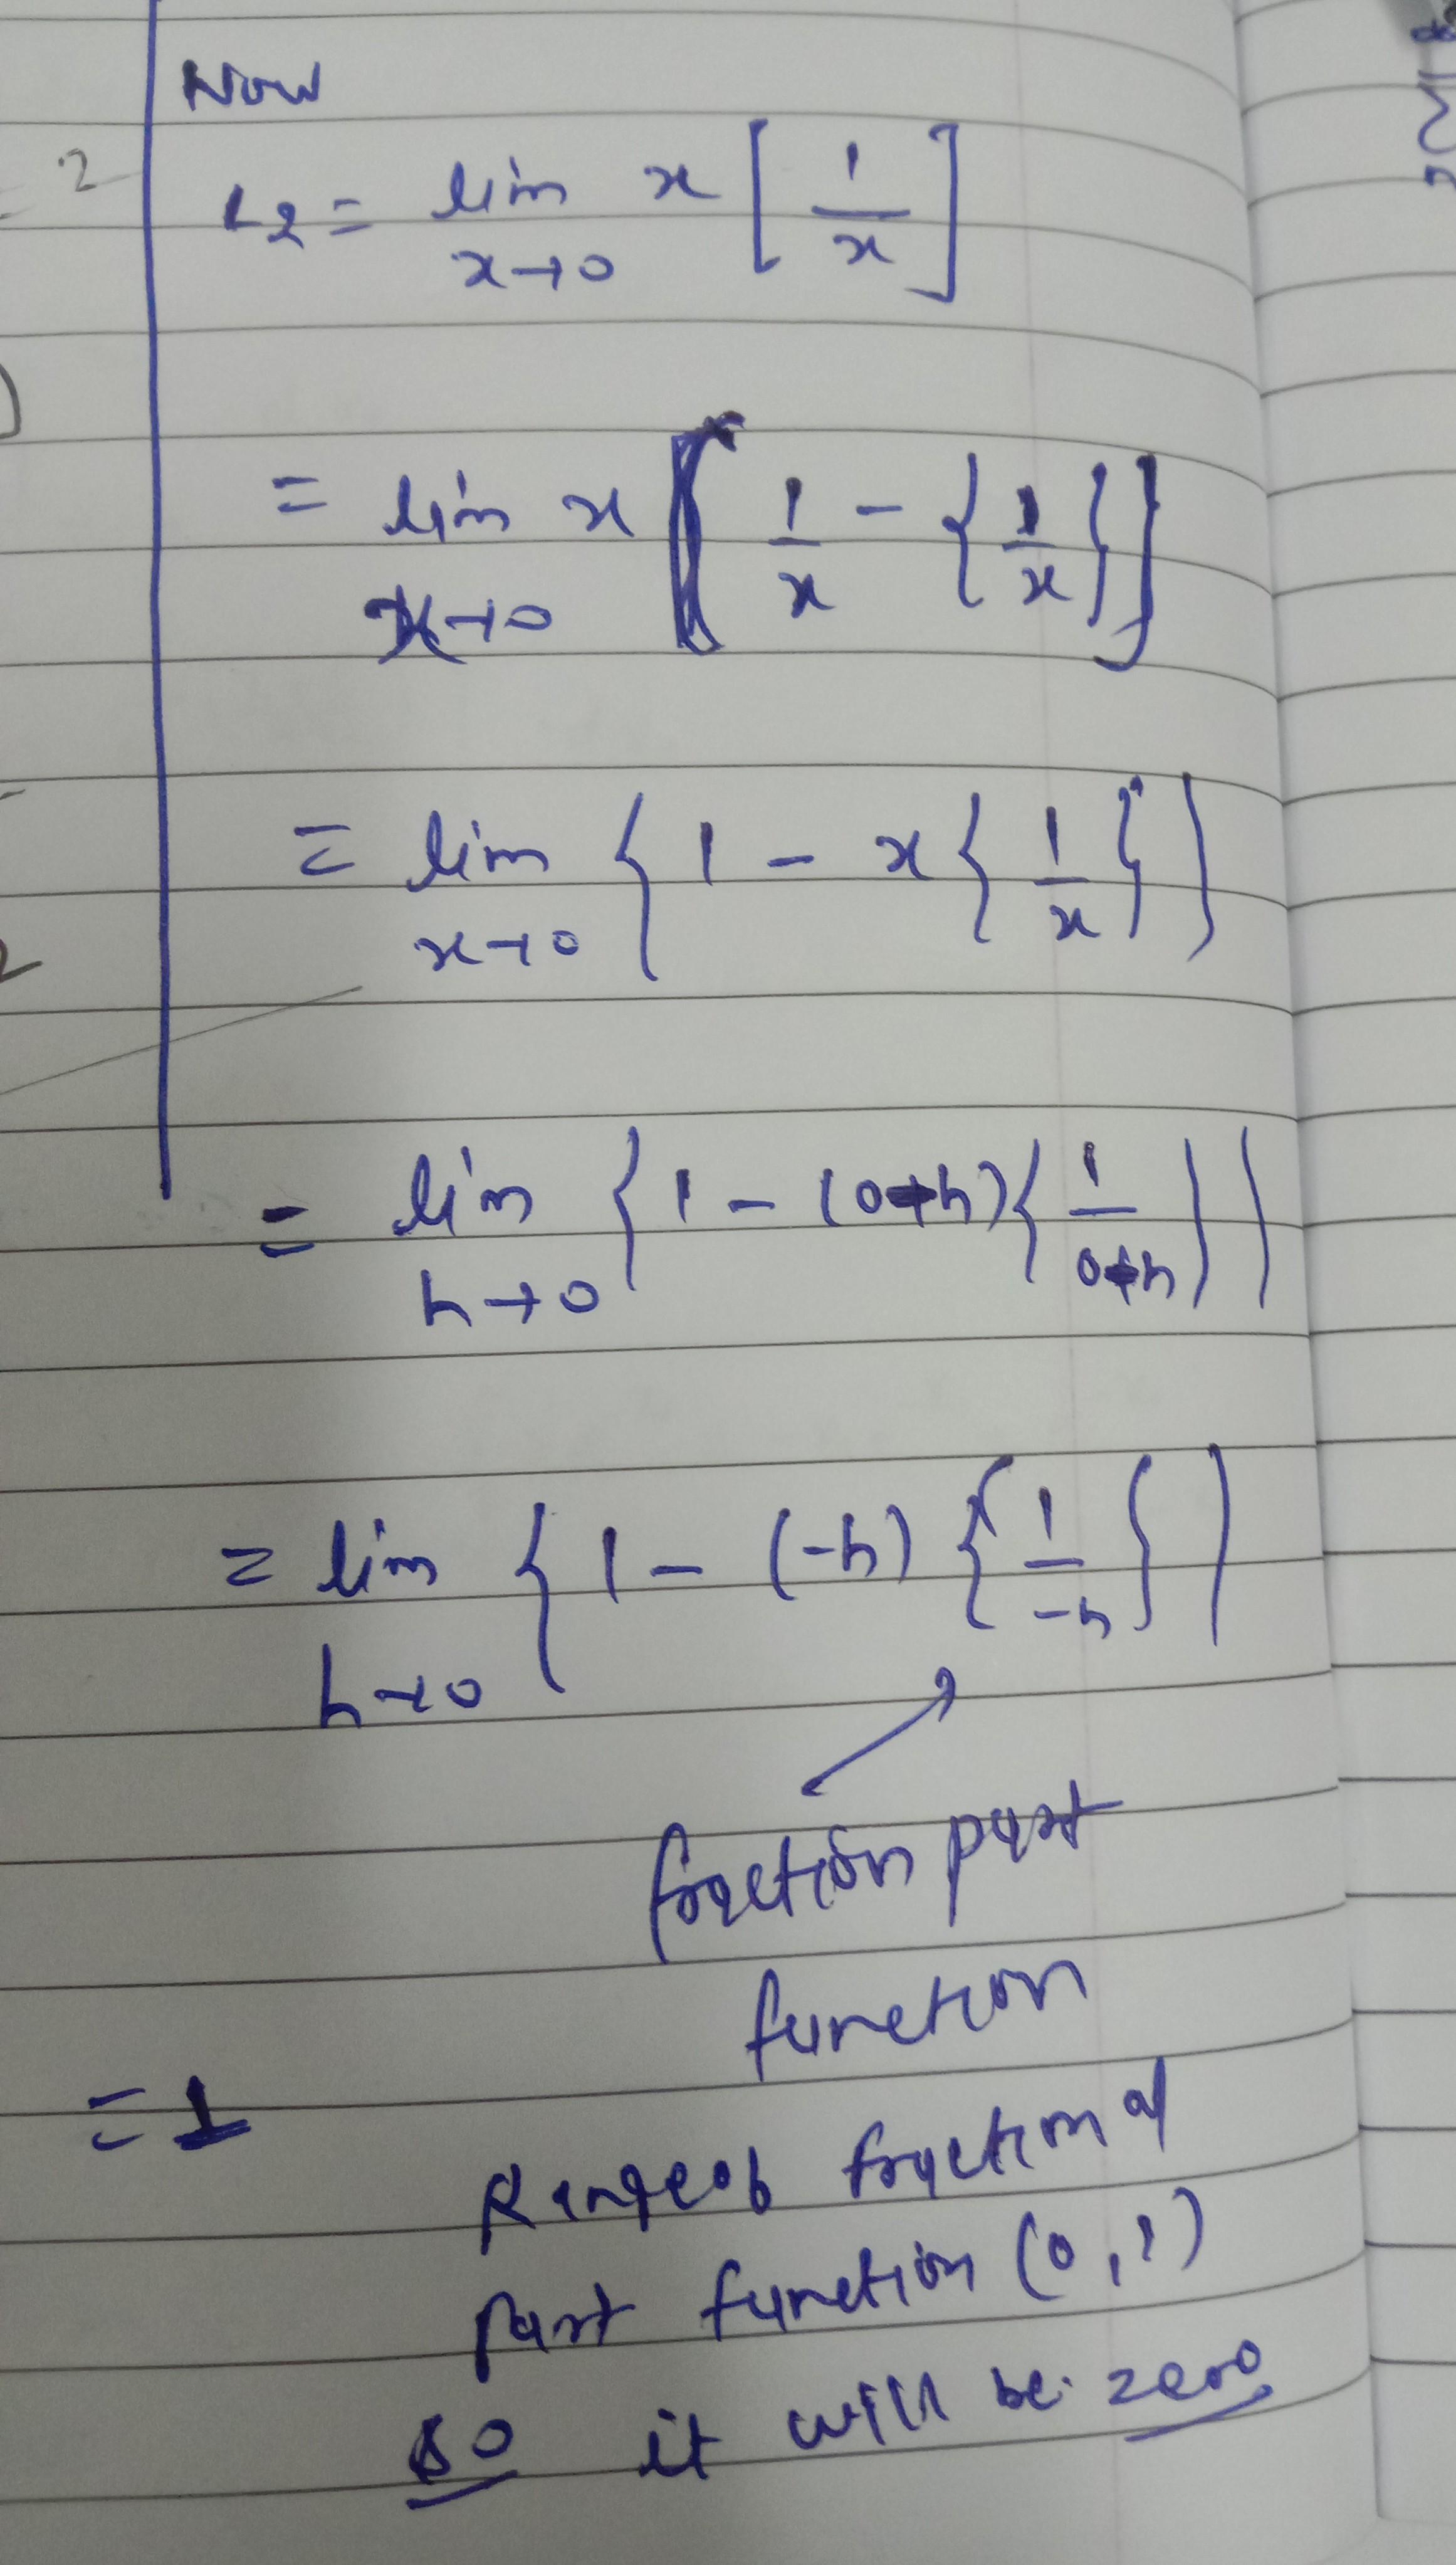 Now
L2 = lim x→0 x [1/x]
= lim x→0 x [1/x - {1/x}]
= lim x→0 {1 - x{1/x}}
= lim h→0 {1 - (0-h){1/0-h}}
= lim h→0 {1 - (-h){1/-h}}
fraction part
function
= 1
Range of fraction of
part function (0,1)
so it will be zero